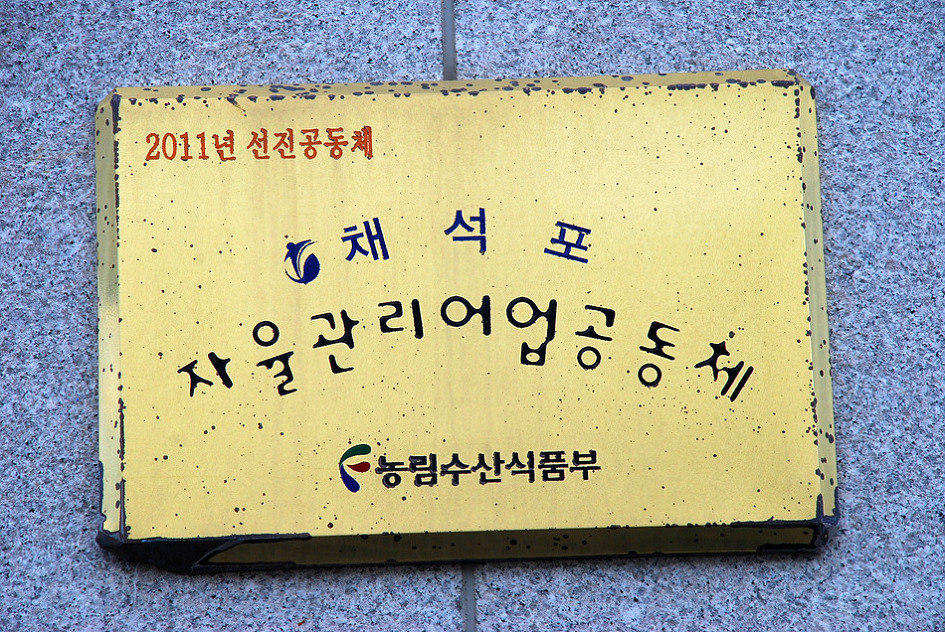 2011년 선진공동체
채석포
자율관리어업공동체
농림수산식품부